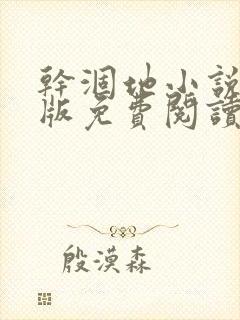 幹涸地小說
版免費閱讀
殷漠森